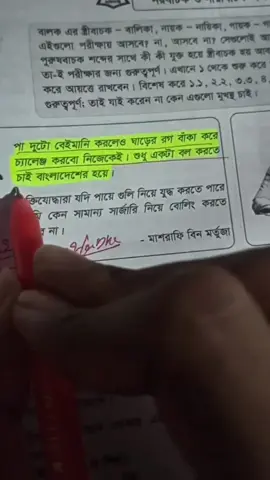 বালক এর স্ত্রীবাচক – বালিকা, নায়ক – নায়িকা, গায়ক –
এইগুলো পরীক্ষায় আসবে? না, আসবে না? সেগুলোই আ
পুরুষবাচক শব্দের সাথে কী কী যুক্ত হয়ে স্ত্রীবাচক হয় আ
তা-ই পরীক্ষার জন্য গুরুত্বপূর্ণ। এখানে ১ থেকে শুরু করে
করে আয়ত্তে রাখবেন। বিশেষ করে ১.১, ২.২, ৩.৩, ৪.
গুরুত্বপূর্ণ: তাই যাই করেন না কেন এগুলো মুখস্থ চাই।
পা দুটো বেইমানি করলেও ঘাড়ের রগ বাঁকা করে
চ্যালেঞ্জ করবো নিজেকেই। শুধু একটা বল করতে
চাই বাংলাদেশের হয়ে।
ক্তিযোদ্ধারা যদি পায়ে গুলি নিয়ে যুদ্ধ করতে পারে
কেন সামান্য সার্জারি নিয়ে বোলিং করতে
না।
- মাশরাফি বিন মর্তুজা